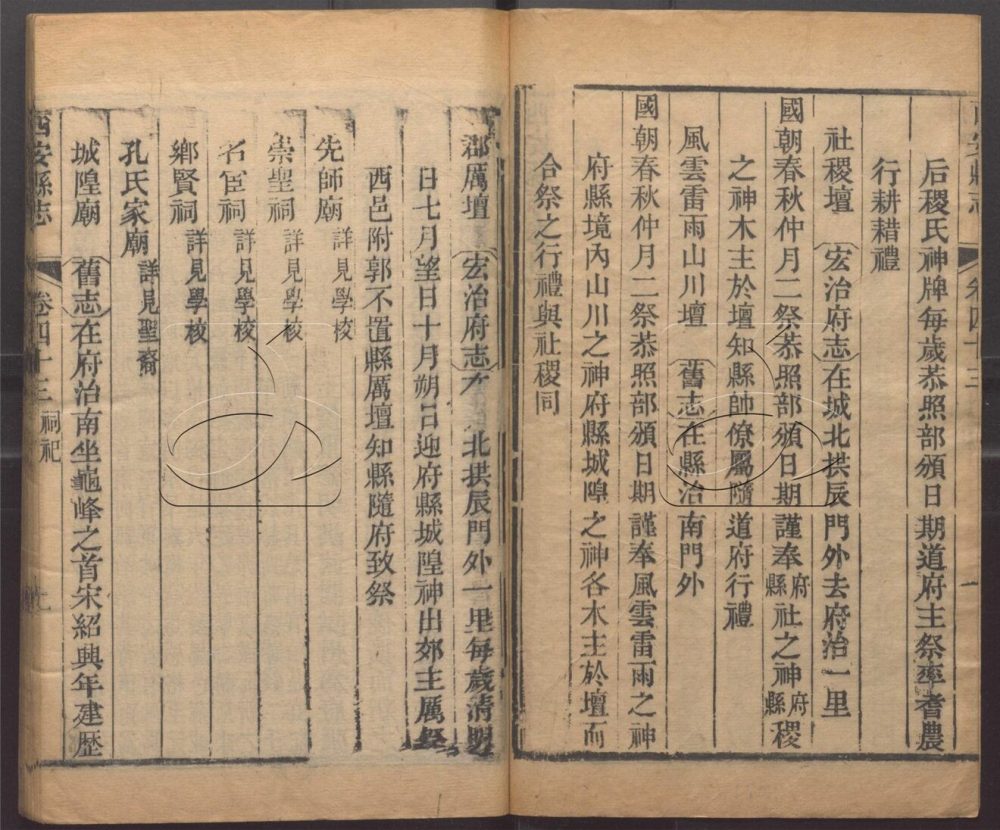 后稷氏神牌每歲恭照部頒日期道府主祭率耆農
行耕耤禮
社稷壇〔宏治府志〕在城北拱辰門外去府治一里
國朝春秋仲月二祭恭照部頒日期謹奉府縣社之神府縣稷
之神木主於壇知縣帥僚屬隨道府行禮
風雲雷雨山川壇〔舊志〕在縣治南門外
國朝春秋仲月二祭恭照部頒日期謹奉風雲雷雨之神
府縣境內山川之神府縣城隍之神各木主於壇而
合祭之行禮與社稷同
郡厲壇〔宏治府志〕在北拱辰門外一里每歲清明
日七月望日十月朔日迎府縣城隍神出郊主厲祭
西邑附郭不置縣厲壇知縣隨府致祭
先師廟 詳見學校
崇聖祠 詳見學校
名宦祠 詳見學校
鄉賢祠 詳見學校
孔氏家廟 詳見聖裔
城隍廟〔舊志〕在府治南坐龜峰之首宋紹興年建歷
西安縣志 卷四十三 祠祀